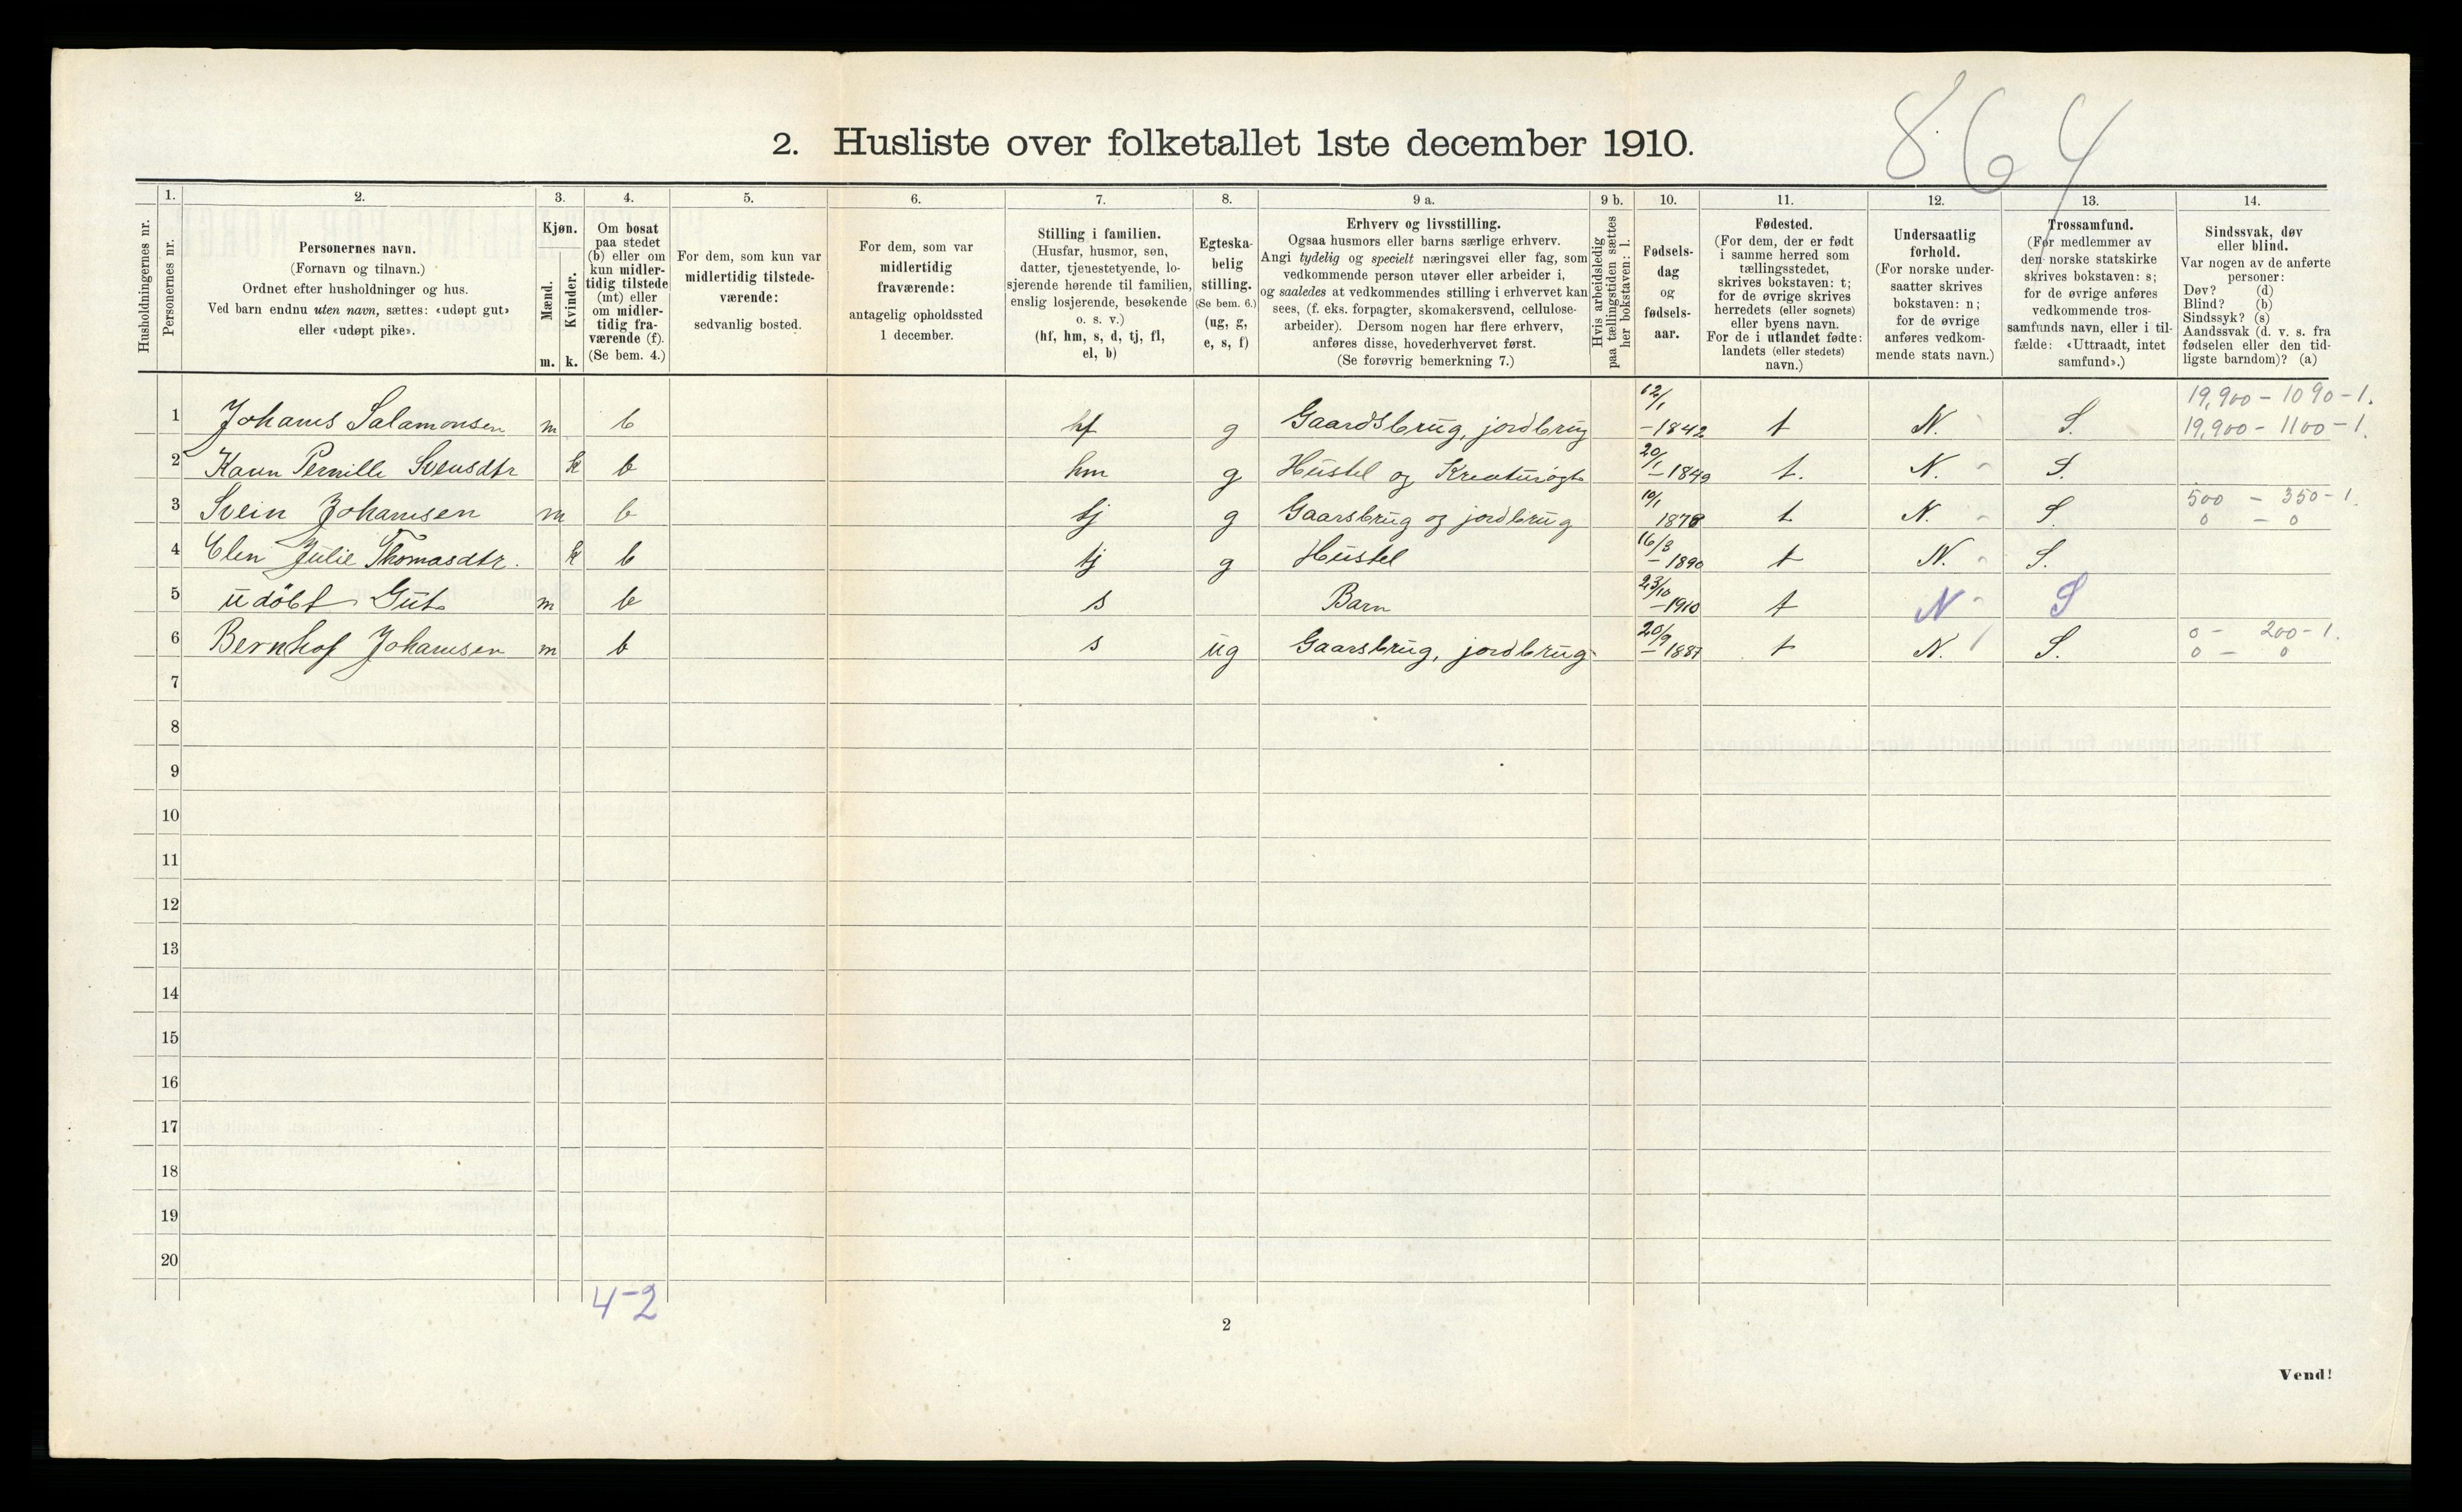 864
2. Husliste over folketallet 1ste december 1910.
Husholdningernes nr.
1. Personernes nr.
2. Personernes navn.
(Fornavn og tilnavn.)
Ordnet efter husholdninger og hus.
Ved barn endnu uten navn, sættes: «udøpt gut»
eller «udøpt pike».
3. Kjøn.
Mænd. m.
Kvinder. k.
4. Om bosat
paa stedet
(b) eller om
kun midler-
tidig tilstede
(mt) eller
om midler-
tidig fra-
værende (f).
(Se bem. 4.)
5. For dem, som kun var
midlertidig tilstede-
værende:
sedvanlig bosted.
6. For dem, som var
midlertidig
fraværende:
antagelig opholdssted
1 december.
7. Stilling i familien.
(Husfar, husmor, søn,
datter, tjenestetyende, lo-
sjerende hørende til familien,
enslig losjerende, besøkende
o. s. v.)
(hf, hm, s, d, tj, fl,
el, b)
8. Egteska-
belig
stilling.
(Se bem. 6.)
(ug, g,
e, s, f)
9 a. Erhverv og livsstilling.
Ogsaa husmors eller barns særlige erhverv.
Angi tydelig og specielt næringsvei eller fag, som
vedkommende person utøver eller arbeider i,
og saaledes at vedkommendes stilling i erhvervet kan
sees, (f. eks. forpagter, skomakersvend, cellulose-
arbeider). Dersom nogen har flere erhverv,
anføres disse, hovederhvervet først.
(Se forøvrig bemerkning 7.)
9 b. Hvis arbeidsledig
paa tællingstiden sættes
her bokstaven: l.
10. Fødsels-
dag
og
fødsels-
aar.
11. Fødested.
(For dem, der er født
i samme herred som
tællingsstedet,
skrives bokstaven: t;
for de øvrige skrives
herredets (eller sognets)
eller byens navn.
For de i utlandet fødte:
landets (eller stedets)
navn.)
12. Undersaatlig
forhold.
(For norske under-
saatter skrives
bokstaven: n;
for de øvrige
anføres vedkom-
mende stats navn.)
13. Trossamfund.
(For medlemmer av
den norske statskirke
skrives bokstaven: s;
for de øvrige anføres
vedkommende tros-
samfunds navn, eller i til-
fælde: «Uttraadt, intet
samfund».)
14. Sindssvak, døv
eller blind.
Var nogen av de anførte
personer:
Døv? (d)
Blind? (b)
Sindssyk? (s)
Aandssvak (d. v. s. fra
fødselen eller den tid-
ligste barndom)? (a)
19,900 - 1090 - 1.
1 Johans Salamonsen m b hf g Gaardsbrug, jordbrug 12/1 - 1842 t N. S. 19,900 - 1100 - 1.
2 Karn Pernille Svensdtr k b hm g Hustel og Kreaturøgt 20/1 - 1849 t. N. S.
3 Svein Johansen m b tj g Gaarsbrug og jordbrug 10/1 1878 t N. S. 500 - 350 - 1.
0 - 0
4 Elen Julie Thomasdtr. k b tj g Hustel 16/3 - 1890 t N. S.
5 udöbt Gut m b s Barn 23/10 - 1910 t N S
6 Bernhof Johansen m b s ug Gaarsbrug, jordbrug 20/9 - 1887 t N. S. 0 - 200 - 1.
0 - 0
7
8
9
10
11
12
13
14
15
16
17
18
19
20
4-2
2
Vend!